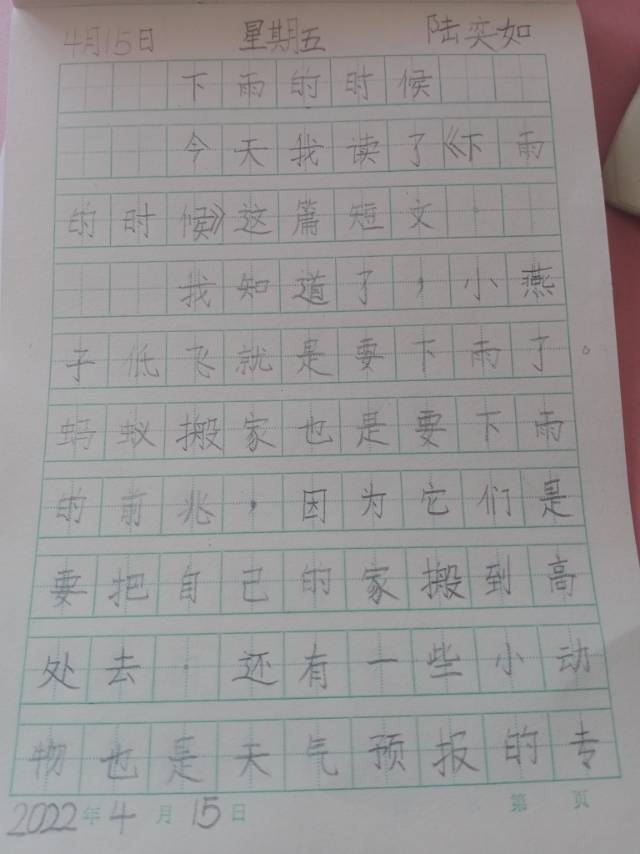 4月15日 星期五 陆奕如
下雨的时候
今天我读了《下雨
的时候》这篇短文。
我知道了，小燕
子低飞就是要下雨了。
蚂蚁搬家也是要下雨
的前兆，因为它们是
要把自己的家搬到高
处去。还有一些小动
物也是天气预报的专
2022年4月15日 第 页